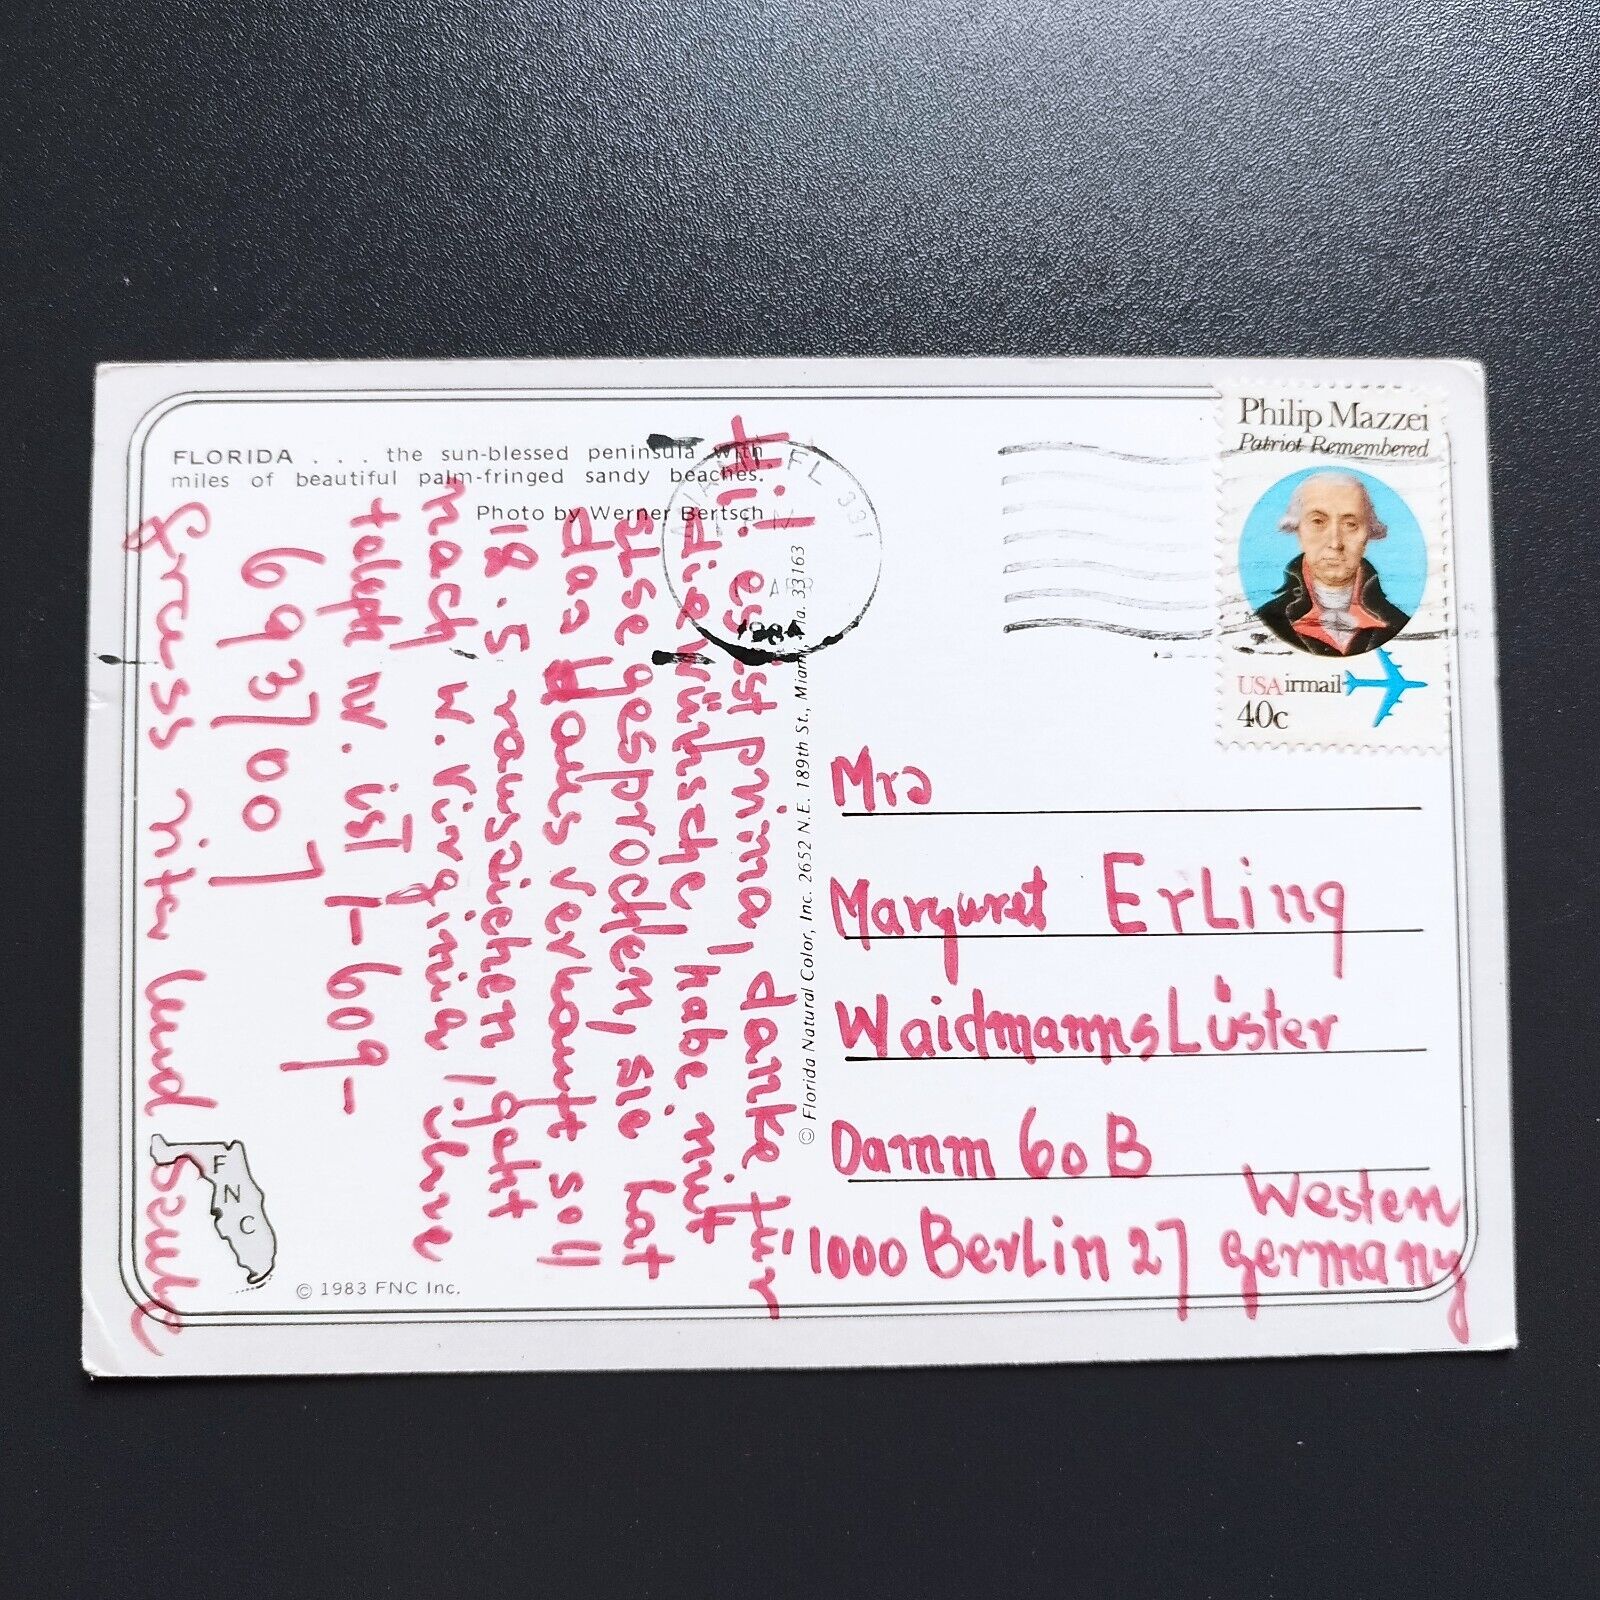 FLORIDA . . . the sun-blessed peninsula with
miles of beautiful palm-fringed sandy beaches.
Photo by Werner Bertsch
Hil! es ist prima, danke für
die wünsche, habe mit
Ilse gesprochen, sie hat
das Haus verkauft soll
18.5 rausziehen, geht
nach W. Virginia, ihre
W. ist 1-609-
6937007
Gruss
und
© 1983 FNC Inc.
F
N
C
© Florida Natural Color, Inc. 2652 N.E. 189th St., Miami, Fla. 33163
MIAMI, FL 331
PM
APR
1984
Philip Mazzei
Patriot Remembered
USAirmail
40c
Mrs
Margaret Erling
Waidmannslüster
Damm 60 B
1000 Berlin 27
Western
germany